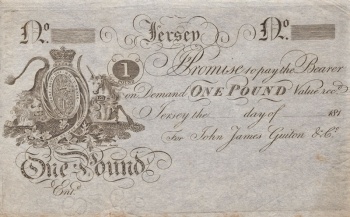 No. Jersey No.
1 Promise to pay the Bearer
on Demand ONE POUND Value recd.
Jersey the day of 181
For John James Guiton & Co.
One Pound
Entd.